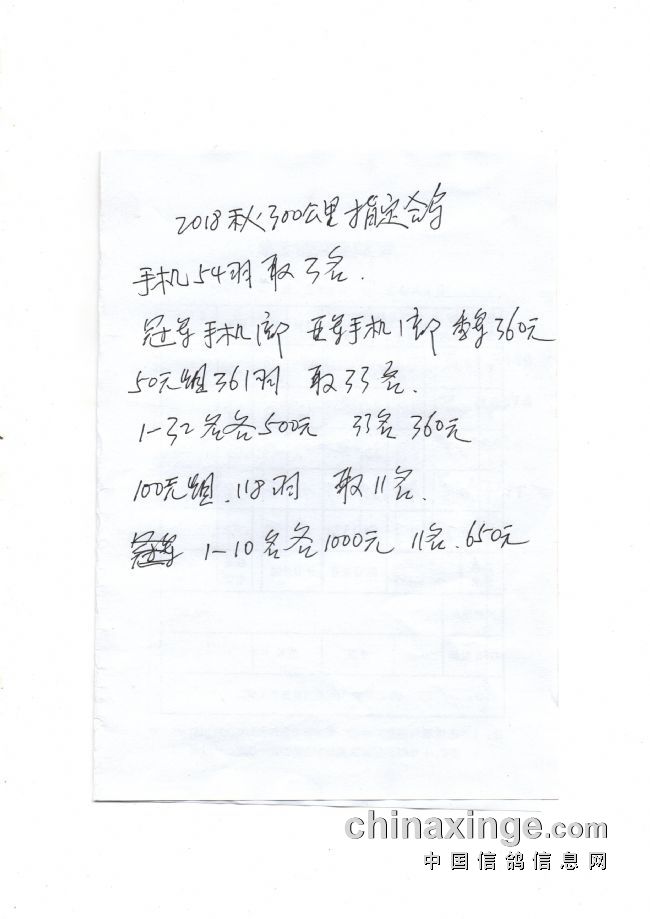 2018秋300公里指定鸽
手机54羽 取3名.
冠军手机1部 亚军手机1部 季军360元
50元组361羽 取33名.
1-32名各500元 33名360元
100元组.118羽 取11名.
冠军 1-10名各1000元 11名.650元
chinaxinge.com
中国信鸽信息网